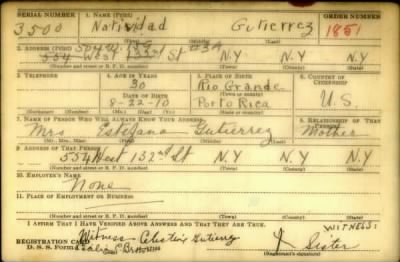 SERIAL NUMBER 1. NAME (Print) ORDER NUMBER
3500 Natividad Gutierrez 1851
(First) (Middle) (Last)
2. ADDRESS (Print)
554 West St N.Y N.Y
(Number and street or R. F. D. number) (Town) (County) (State)
3. TELEPHONE 4. AGE IN YEARS 5. PLACE OF BIRTH 6. COUNTRY OF CITIZENSHIP
30 Rio Grande
DATE OF BIRTH (Town or county)
8-22-10 Porto Rica U.S.
(Exchange) (Number) (Mo.) (Day) (Yr.) (State or country)
7. NAME OF PERSON WHO WILL ALWAYS KNOW YOUR ADDRESS 8. RELATIONSHIP OF THAT PERSON
Mrs Estefana Gutierrez Mother
(Mr., Mrs., Miss) (First) (Middle) (Last)
9. ADDRESS OF THAT PERSON
554 West 132nd St N.Y N.Y
(Number and street or R. F. D. number) (Town) (County) (State)
10. EMPLOYER'S NAME
None
11. PLACE OF EMPLOYMENT OR BUSINESS
(Number and street or R. F. D. number) (Town) (County) (State)
I AFFIRM THAT I HAVE VERIFIED ABOVE ANSWERS AND THAT THEY ARE TRUE.
WITNESS:
REGISTRATION CARD Witness Gutierrez Sister
D. S. S. Form 1 (Registrant's signature)